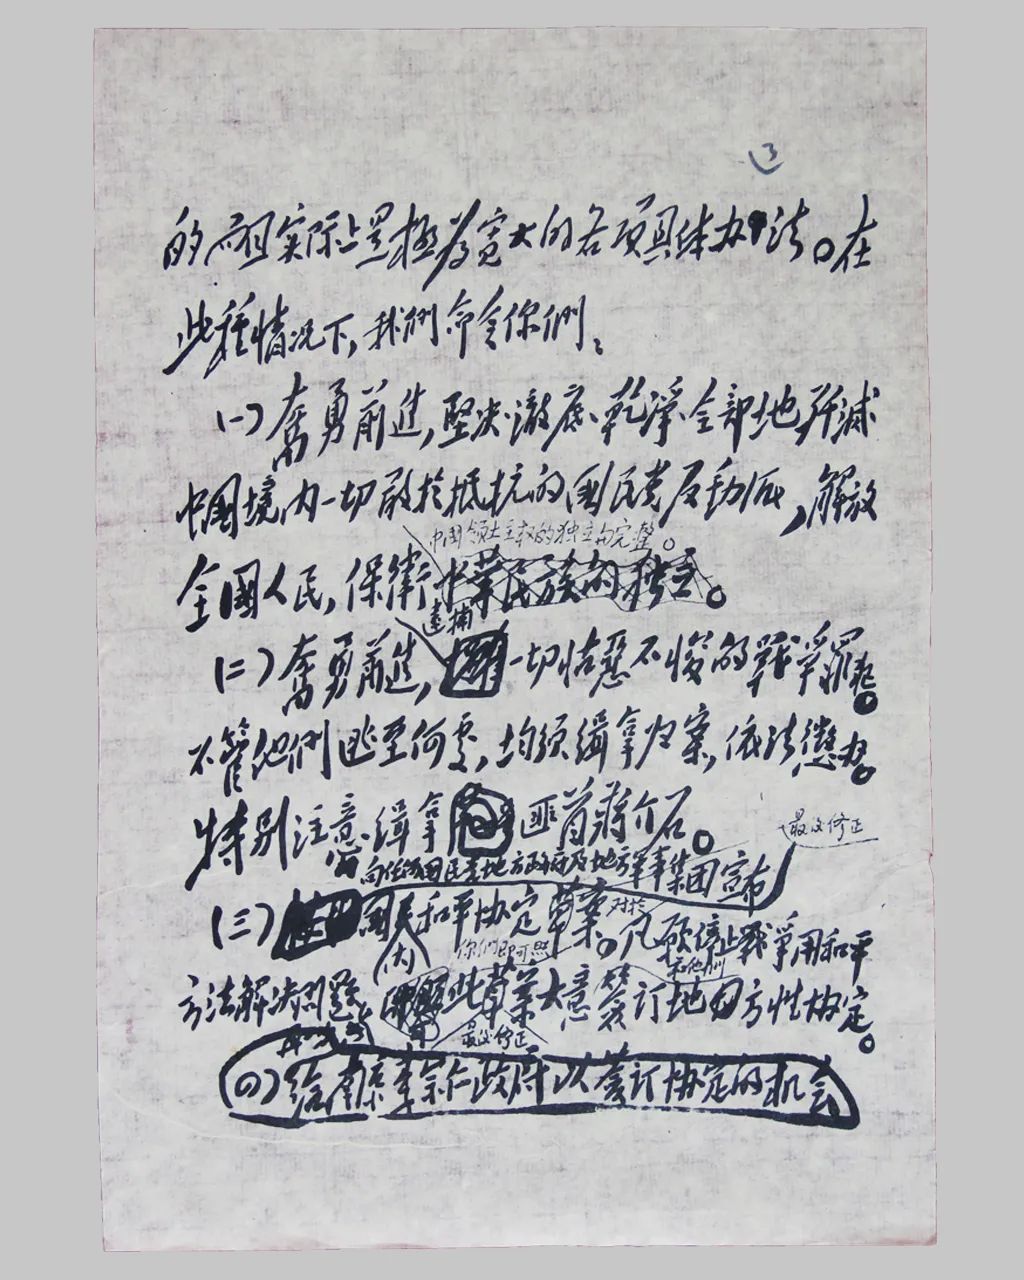 3
的而且实际上是极为宽大的各项具体办法。在
此種情况下,我们命令你們:
(一)奋勇前进,堅决、澈底、乾净、全部地歼滅
中國境内一切敢於抵抗的国民党反動派,解放
中国领土主权的独立与完整。
全國人民,保衛中華民族的独立。
逮捕
(二)奋勇前进,一切怙恶不悛的戰爭罪犯。
不管他們逃至何處,均须缉拿归案,依法懲办。
特别注意缉拿匪首蔣介石。
最後修正
向任何国民党地方政府及地方軍事集团宣布
(三)國内和平协定草案。对於凡愿停止戰爭用和平
你們即可照
和他們
方法解决问题者,此草案大意簽订地方性协定。
最後修正
(四)给南京李宗仁政府以簽订协定的机会